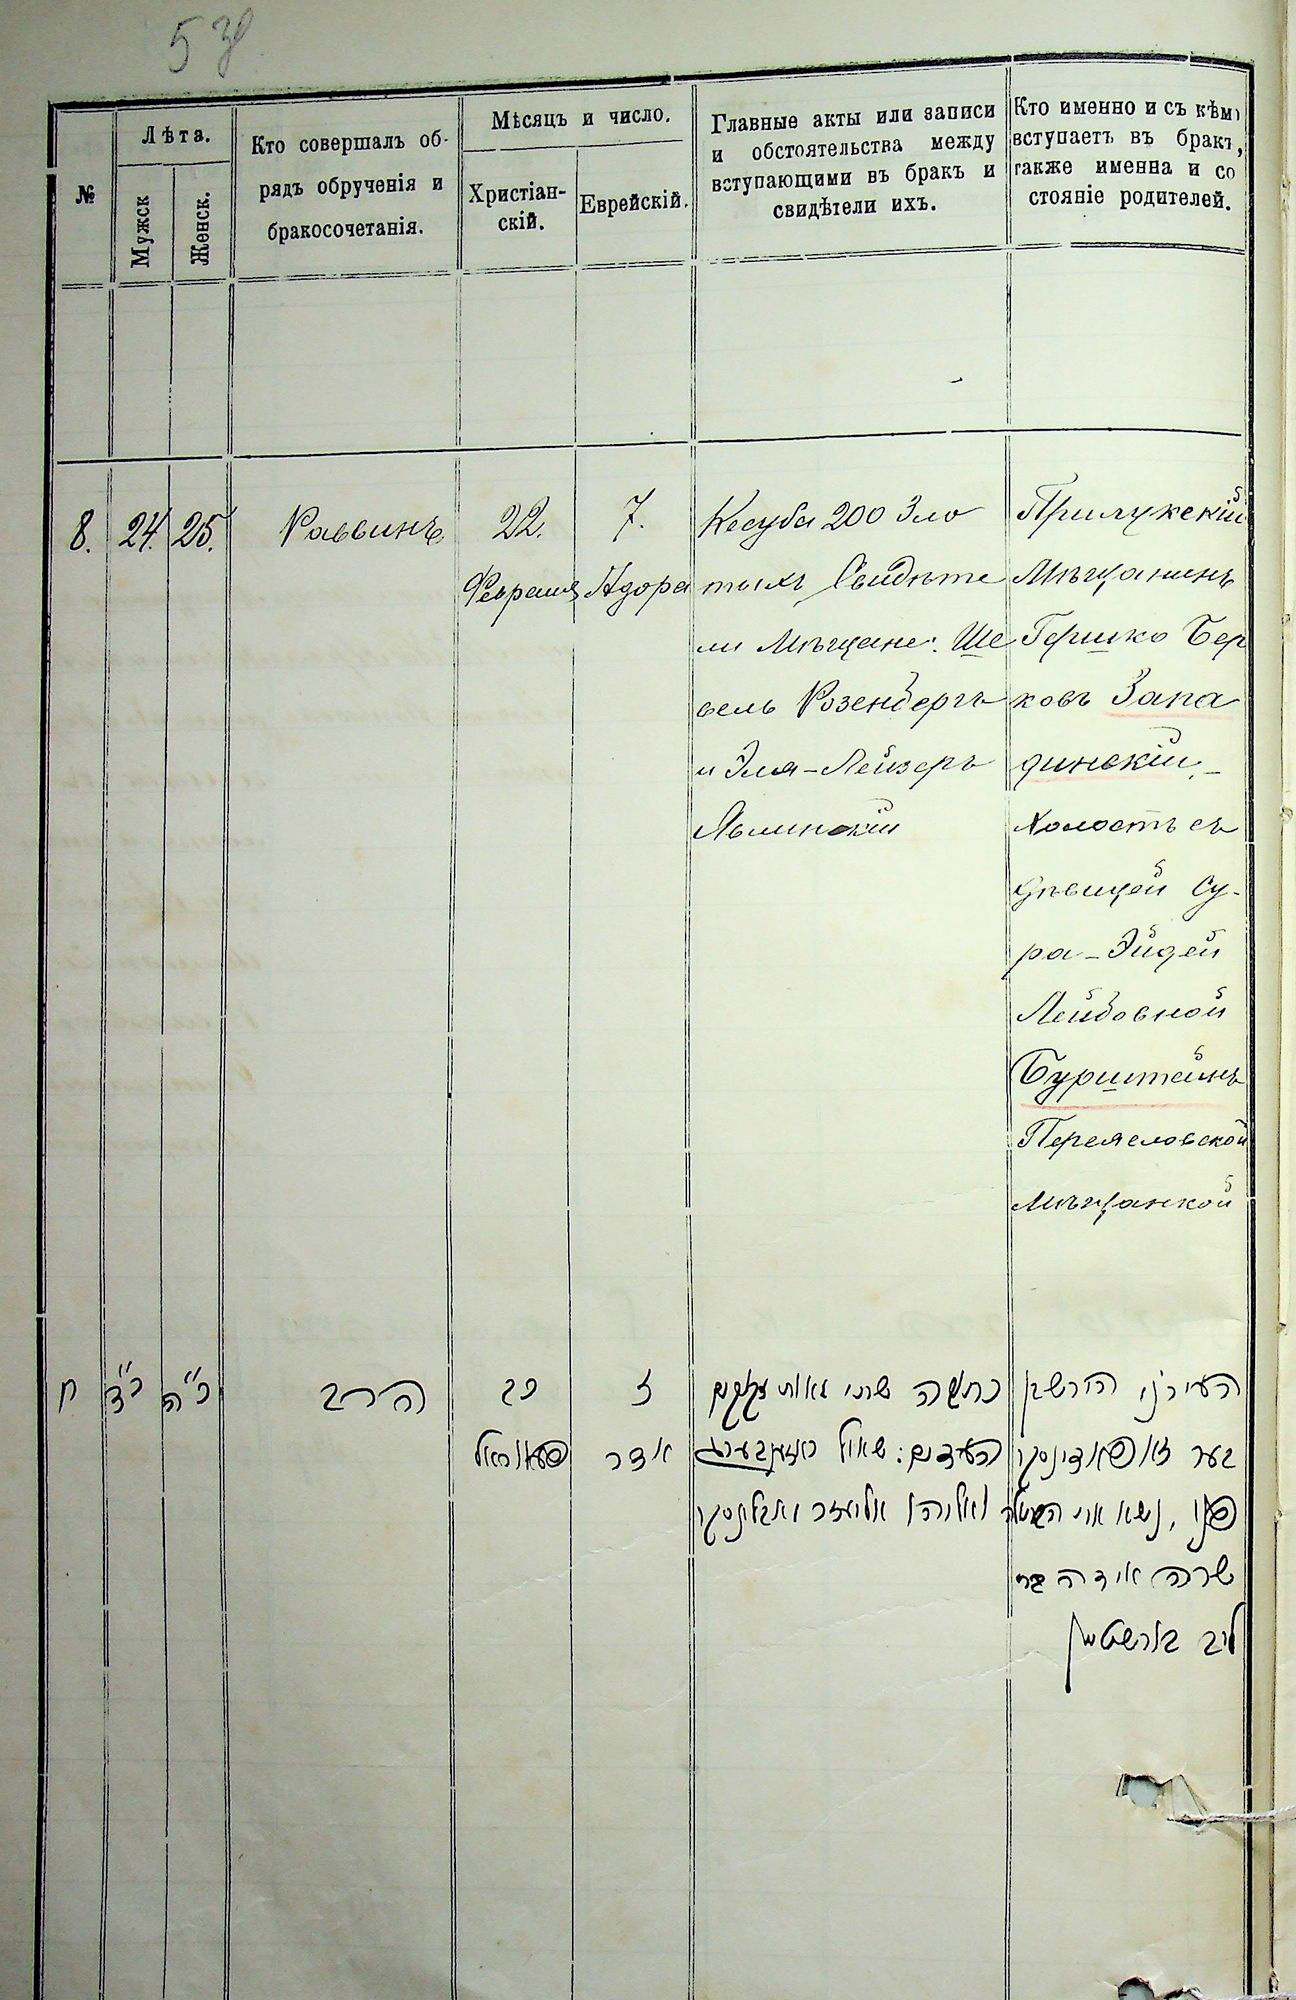 53
№
Лѣта.
Мужск
Женск.
Кто совершалъ об-
рядъ обрученія и
бракосочетанія.
Мѣсяцъ и число.
Христіан-
скій.
Еврейскій.
Главные акты или записи
и обстоятельства между
вступающими въ бракъ и
свидѣтели ихъ.
Кто именно и съ кѣмъ
вступаетъ въ бракъ,
также имена и со
стояніе родителей.
8.
24.
25.
Раввинъ
22.
Февраля
7.
Адора
Кесуба 200 Зло
тыхъ Свидѣте
ли Мѣщане: Ше
вель Розенбергъ
и Эля-Лейзеръ
Явлинскій
Прилукскій
Мѣщанинъ
Гершко Бер
ковъ Запа
динскій
холостъ съ
дѣвицей Су-
ра-Эйдей
Лейбовной
Бурштейнъ
Переяславской
Мѣщанкой
ח
כ"ד
כ"ה
הרב
כב
פעווראל
ז
אדר
כתובה שתי מאות זקוקים
העדים: שאול ראזענבערג
ואליהו אליעזר יאבלינסקי
העירני הירש בן
בער זאפאדינסקי
פנוי, נשא את הבתולה
שרה אידה בת
ליב בורשטיין